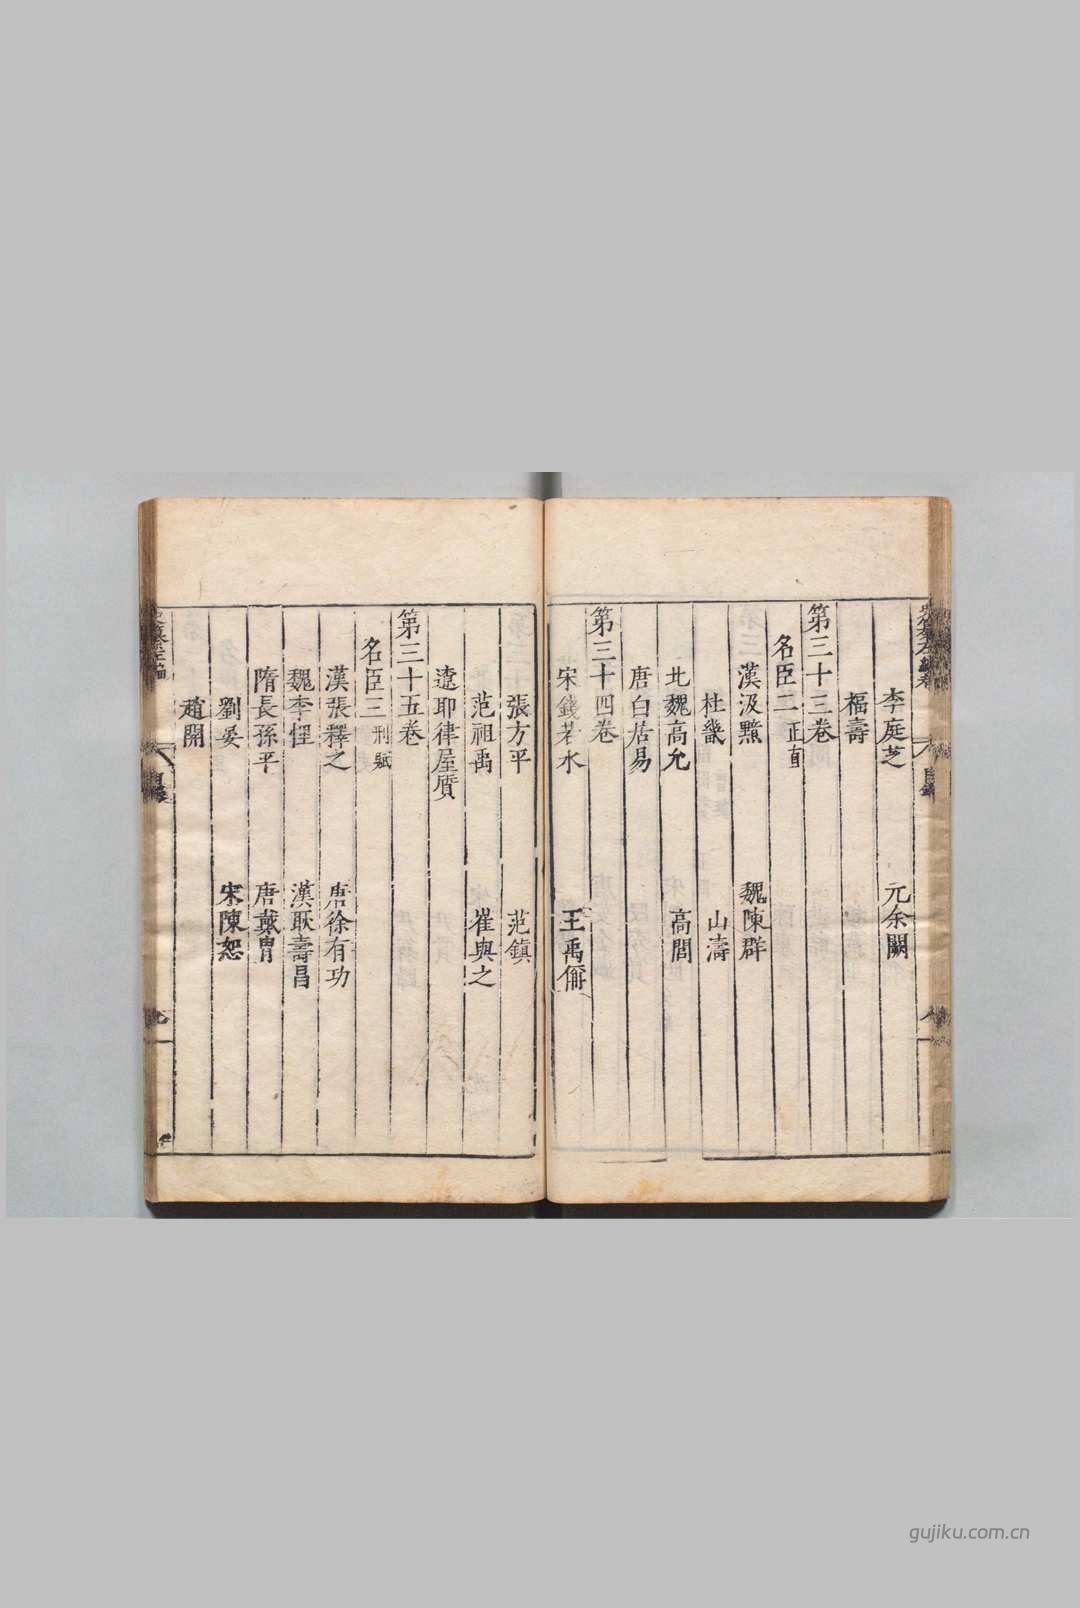 李庭芝 元余闕
福壽
第三十三卷
名臣二 正直
漢汲黯 魏陳群
杜畿 山濤
北魏高允 高閭
唐白居易
第三十四卷
宋錢若水 王禹偁
張方平 范鎮
范祖禹 崔與之
遼耶律屋質
第三十五卷
名臣三 刑賦
漢張釋之 唐徐有功
魏李悝 漢耿壽昌
隋長孫平 唐戴冑
劉晏 宋陳恕
趙開
目錄
gujiku.com.cn